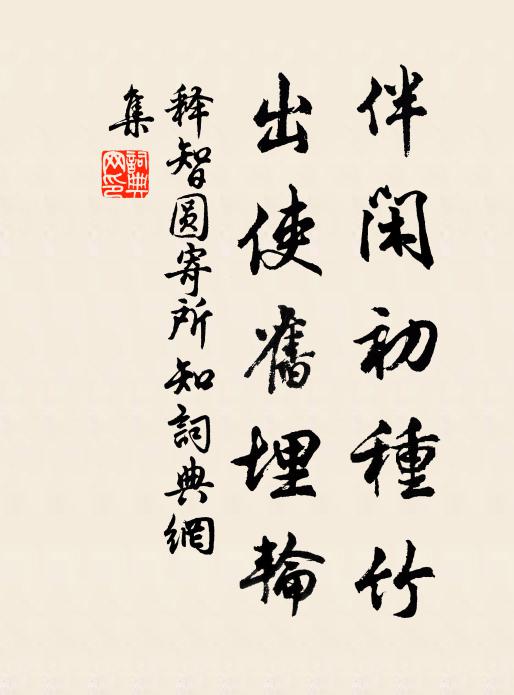 伴閑初種竹
出使舊埋輪
释智圆寄所知詞典網
集
詞典
网印